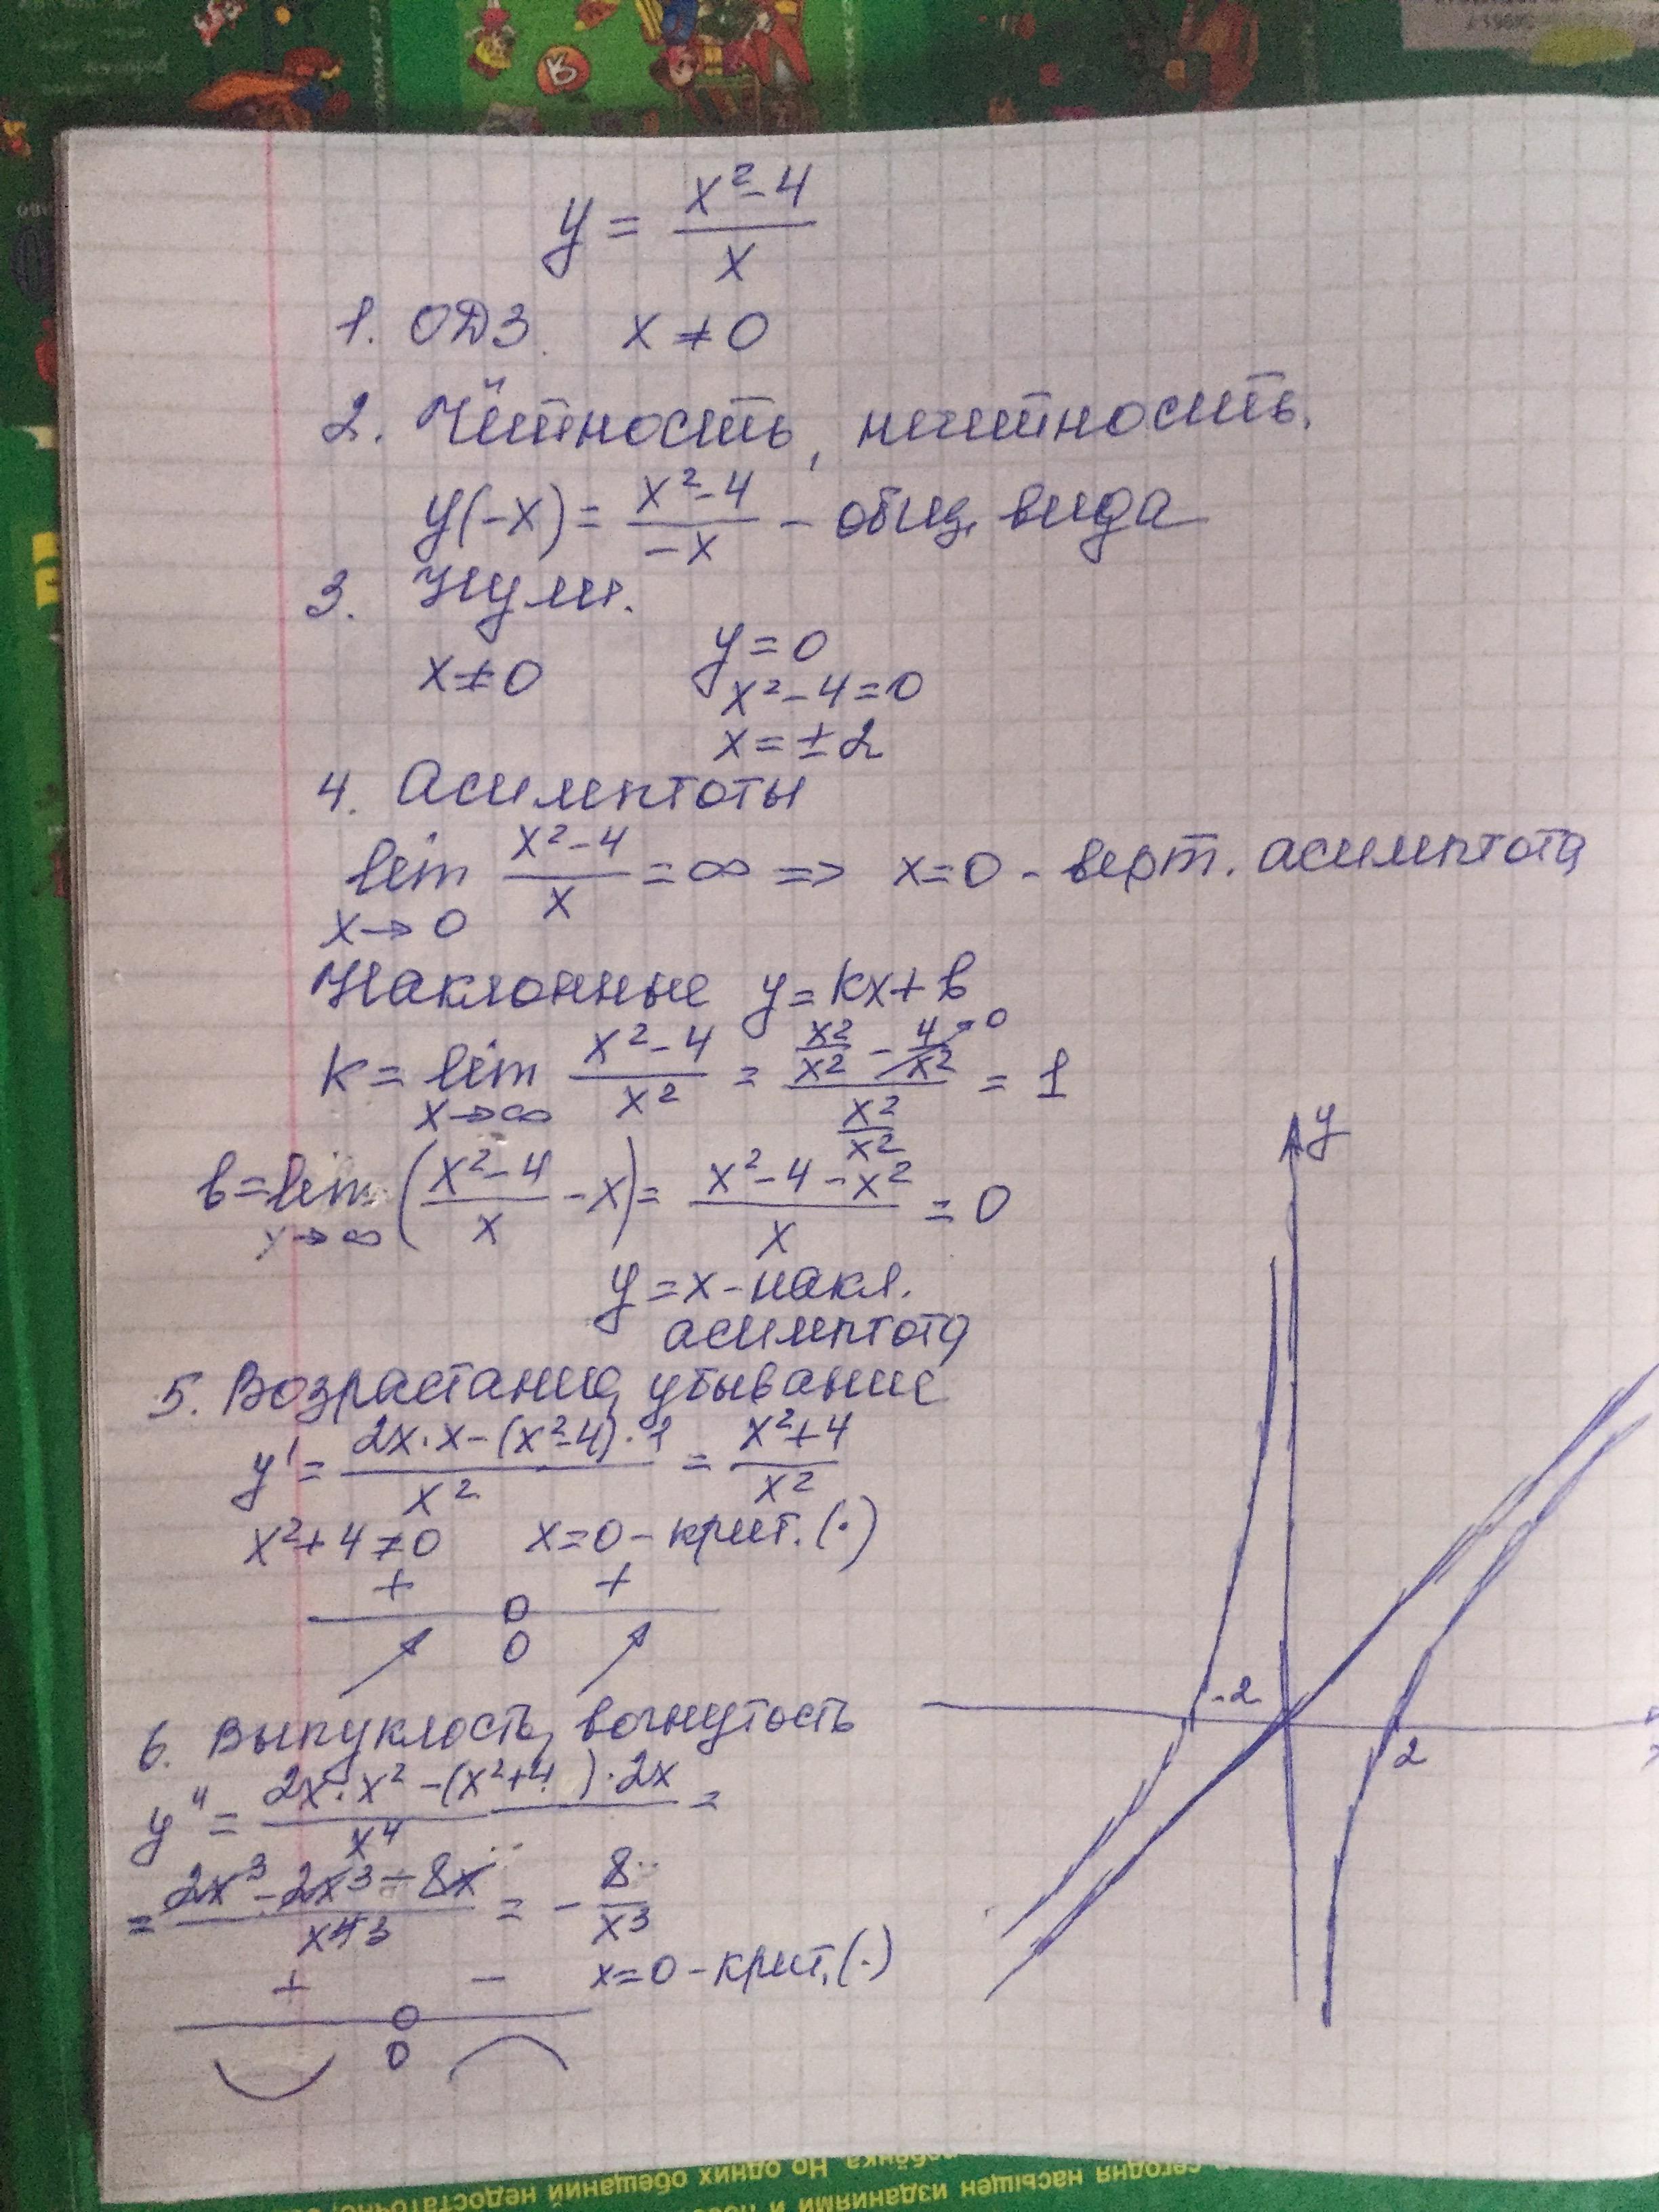 y = (x² - 4) / x
1. ОДЗ. x ≠ 0
2. Чётность, нечетность.
y(-x) = (x² - 4) / (-x) - общ. вида
3. Нули.
x ≠ 0
y = 0
x² - 4 = 0
x = ± 2
4. Асимптоты
lim x→0 (x² - 4) / x = ∞ => x = 0 - верт. асимптота
Наклонные y = kx + b
k = lim x→∞ (x² - 4) / x² = (x²/x² - 4/x² →0) / (x²/x²) = 1
b = lim x→∞ ((x² - 4) / x - x) = (x² - 4 - x²) / x = 0
y = x - накл.
асимптота
5. Возрастание, убывание
y' = (2x · x - (x² - 4) · 1) / x² = (x² + 4) / x²
x² + 4 ≠ 0 x = 0 - крит. (·)
+ +
0
6. Выпуклость, вогнутость
y'' = (2x · x² - (x² + 4) · 2x) / x⁴ =
= (2x³ - 2x³ - 8x) / x⁴ ³ = - 8 / x³
x = 0 - крит. (·)
+ -
0
y
-2
2
x